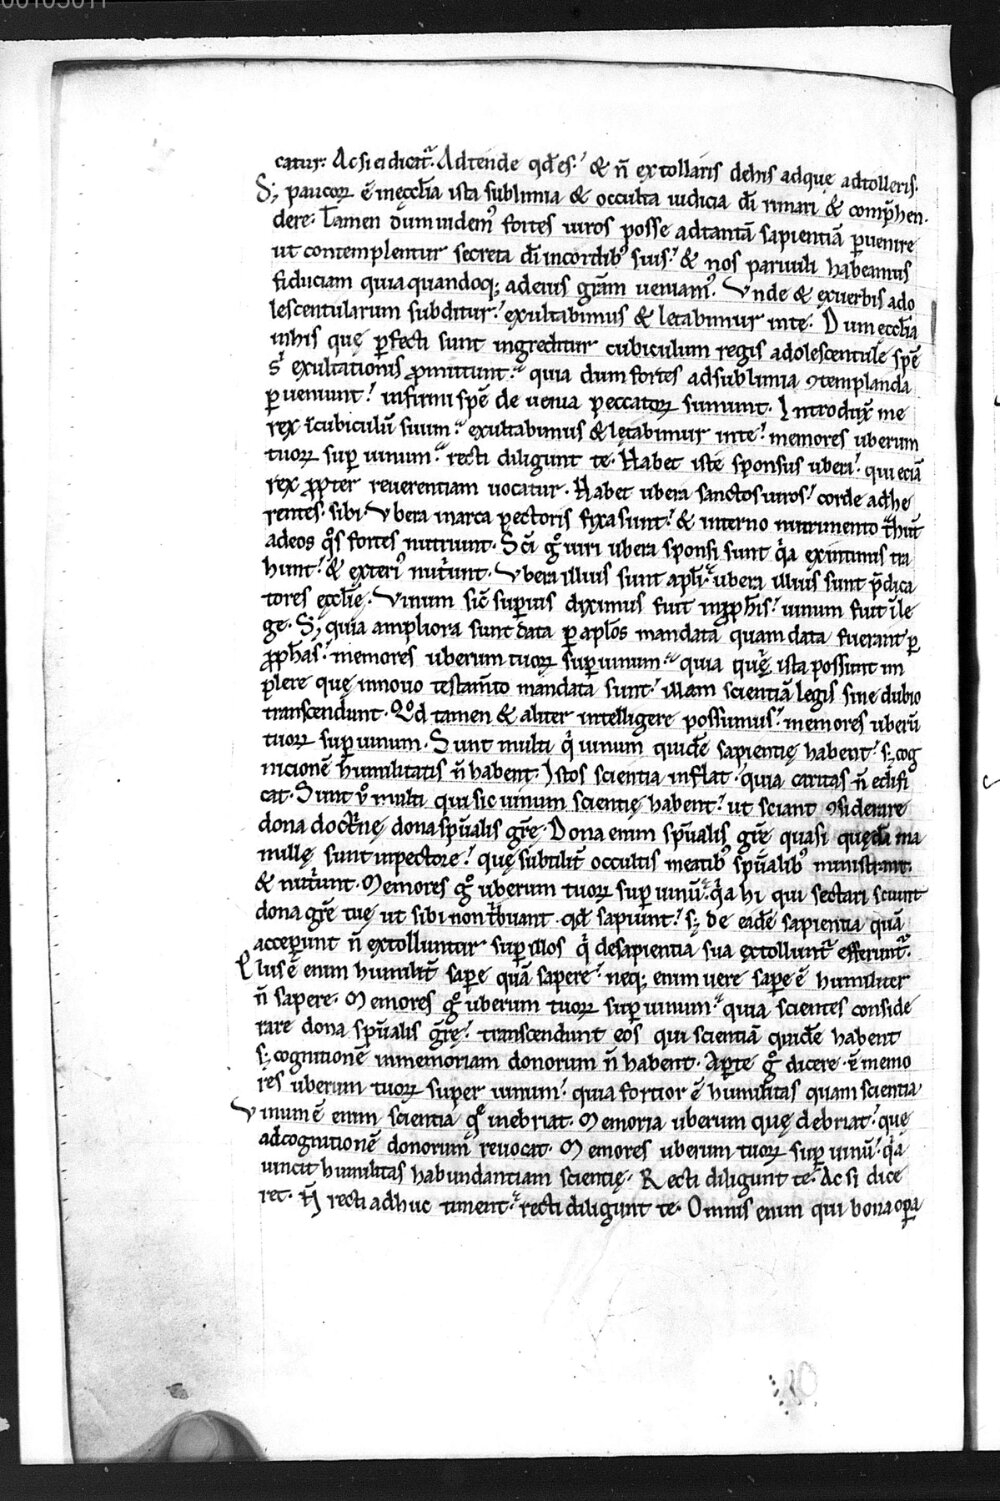 catur. Ac si ei dicat̃. Adtende qd̃ es. & ñ extollaris de his ad que adtolleris.
S; paucoꝝ ẽ in ęccl̃ia ista sublimia & occulta iudicia dĩ rimari & compr̃hen
dere. Tamen dum uidem᷒ fortes uiros posse ad tantã sapientiã ꝑuenire
ut contemplentur secreta dĩ in cordib᷒ suis. & nos paruuli habeamus
fiduciam quia quandoq; ad eius grãm ueniam᷒. Vnde & ex uerbis ado
lescentularum subditur. exultabimus & letabimur in te. Dum eccl̃ia
in his quę ꝑfecti sunt ingreditur cubiculum regis adolescentule spẽ
s̃ exultationis ꝓmittunt. quia dum fortes ad sublimia ꝯtemplanda
ꝑueniunt. infirmi spẽ de uenia peccatoꝝ sumunt. Introdux̃ me
rex ĩ cubiculũ suum. exultabimus & letabimur in te. memores uberum
tuoꝝ suꝑ uinum. recti diligunt te. Habet iste sponsus ubera. qui eciã
rex ꝓpter reuerentiam uocatur. Habet ubera sanctos uiros. corde adhe
rentes sibi. Vbera in arca pectoris fixa sunt. & interno nutrimento t̃hũt
ad eos qͦs fortes nutriunt. Sc̃i gͦ uiri ubera sponsi sunt qͣa ex intimis tra
hunt. & exteri᷒ nut̃unt. Vbera illius sunt apl̃i. ubera illius sunt p̃dica
tores eccl̃ie. Vinum sic̃ suꝑius diximus fuit in ꝓph̃is. uinum fuit ĩ le
ge. S; quia ampliora sunt data ꝑ apl̃os mandata quam data fuerant ꝑ
ꝓph̃as. memores uberum tuoꝝ suꝑ uinum. quia qui ista possunt im
plere quę in nouo testam̃to mandata sunt. illam scientiã legis sine dubio
transcendunt. Qd̃ tamen & aliter intelligere possumus. memores uberũ
tuoꝝ suꝑ uinum. Sunt multi qͥ uinum quidẽ sapientię habent. s; cog
nicionẽ humilitatis ñ habent. Istos scientia inflat. quia caritas ñ edifi
cat. Sunt uͦ multi qui sic uinum scientię habent. ut sciant ꝯsiderare
dona doct̃nę dona sp̃ualis gr̃e. Dona enim sp̃ualis gr̃e quasi quędã ma
millę sunt in pectore. quę subtilit̃ occultis meatib᷒ sp̃ualib᷒ ministrant.
& nut̃unt. Memores gͦ uberum tuoꝝ suꝑ uinũ. qͣa hi qui sectari sciunt
dona gr̃e tuę ut sibi non t̃buant qd̃ sapiunt. s; de eadẽ sapientia quã
acceꝑunt ñ extolluntur suꝑ illos qͥ de sapientia sua extollunt̃ efferunt̃.
Plus ẽ enim humilit̃ saꝑe quã sapere. neq; enim uere saꝑe ẽ humiliter
ñ sapere. Memores gͦ uberum tuoꝝ suꝑ uinum. quia scientes conside
rare dona sp̃ualis gr̃ę. transcendunt eos qui scientiã quidẽ habent
s; cognitionẽ in memoriam donorum ñ habent. Aꝑte gͦ dicere ẽ memo
res uberum tuoꝝ super uinum. quia fortior ẽ humilitas quam scientia.
Vinum ẽ enim scientia qͤ inebriat. Memoria uberum quę debriat. quę
ad cognitionẽ donorum reuocat. Memores uberum tuoꝝ suꝑ uinũ. qͣa
uincit humilitas habundantiam scientię. Recti diligunt te. Ac si dice
ret. Ñ recti adhuc timent. recti diligunt te. Omnis enim qui bona oꝑa